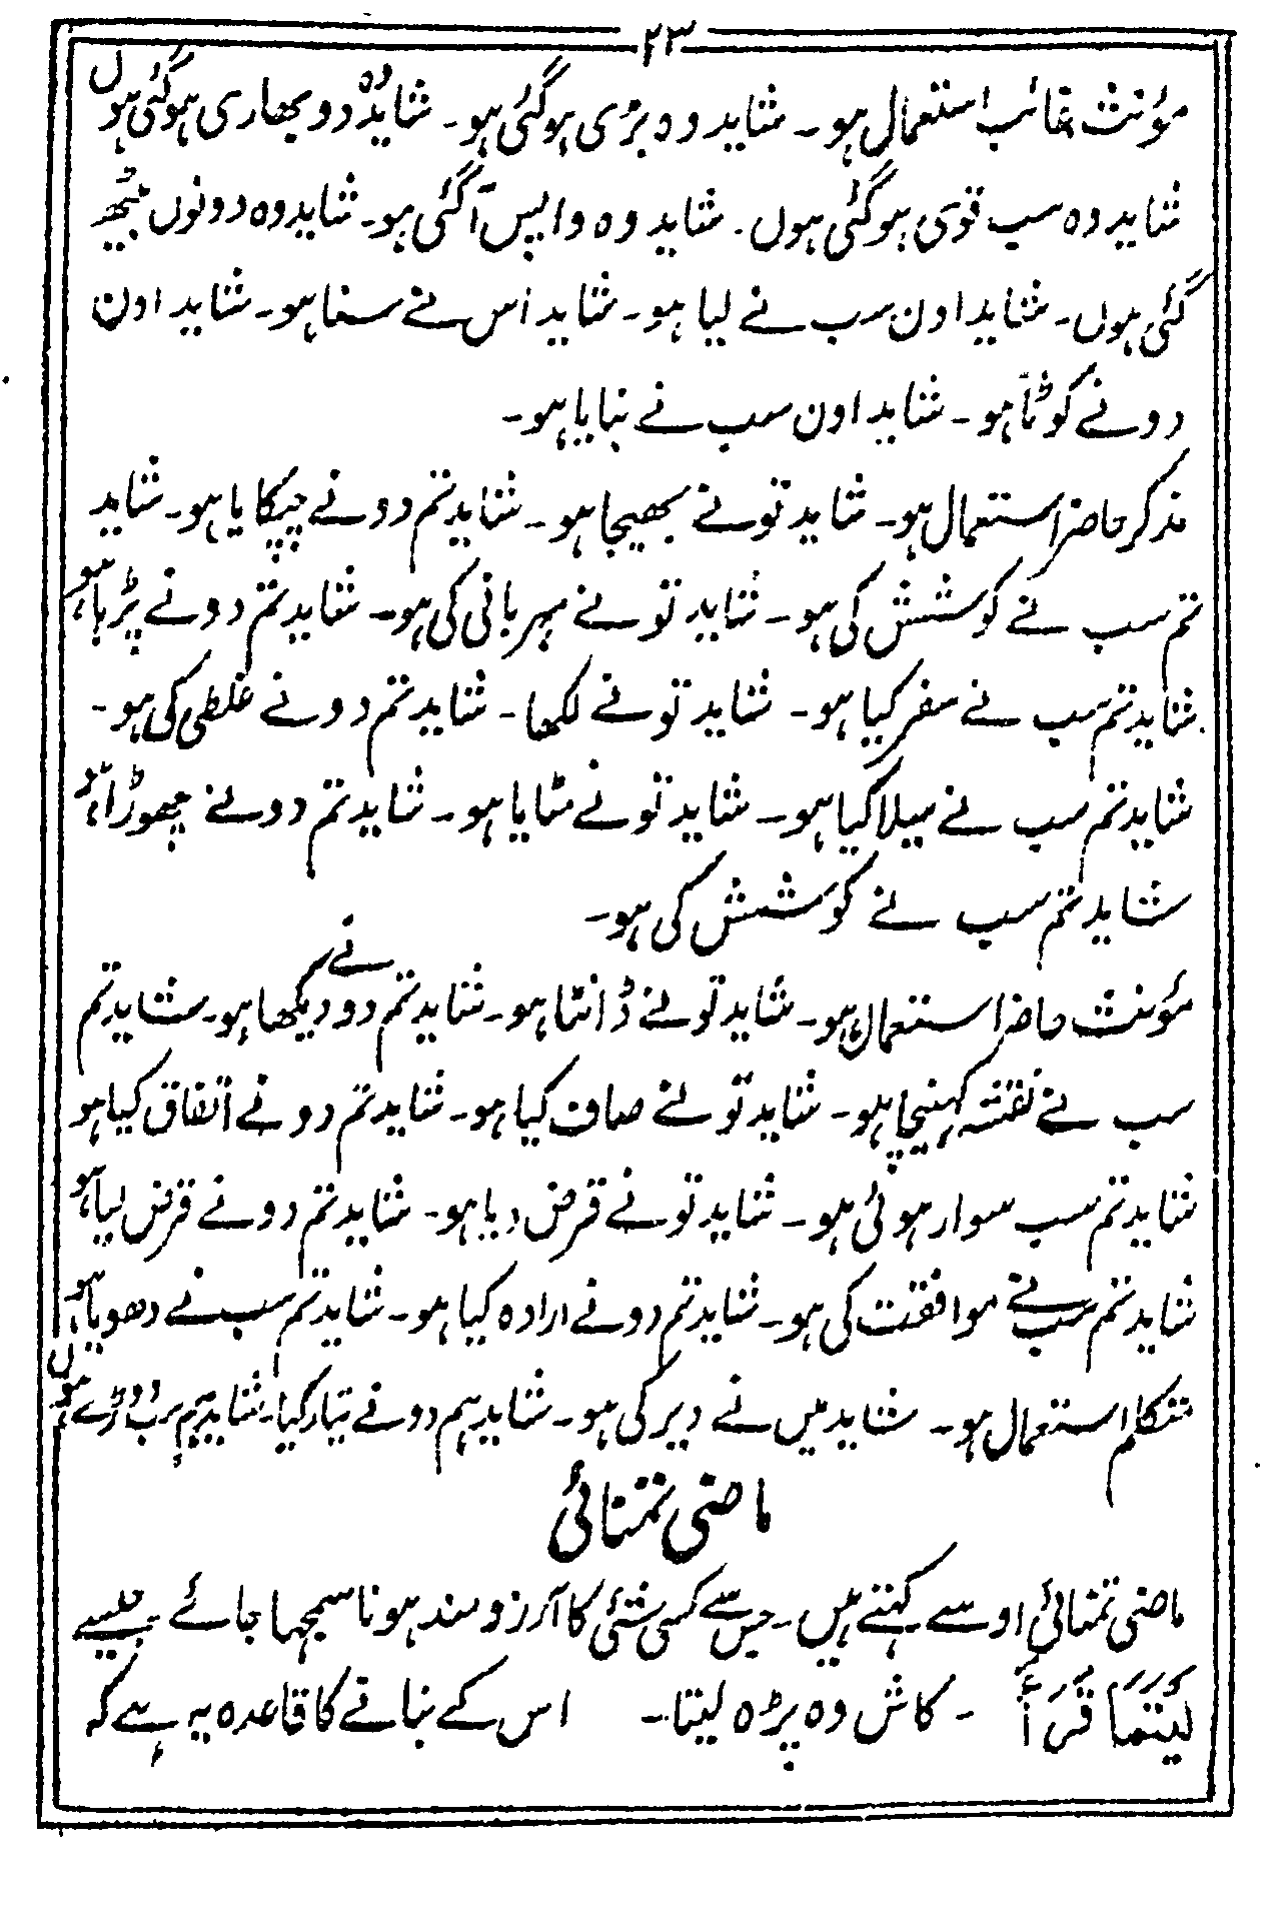 ۲۳
مؤنث غائب استعمال ہو۔ شاید وہ بڑی ہوگئی ہو۔ شاید وہ دو بھاری ہوگئی ہوں
شاید وہ سب قوی ہوگئی ہوں۔ شاید وہ واپس آگئی ہو۔ شاید وہ دونوں بیٹھ
گئی ہوں۔ شاید اون سب نے لیا ہو۔ شاید اس نے سنا ہو۔ شاید اون
دو نے کوٹا ہو۔ شاید اون سب نے بنایا ہو۔
مذکر حاضر استعمال ہو۔ شاید تو نے بھیجا ہو۔ شاید تم دو نے چپکایا ہو۔ شاید
تم سب نے کوشش کی ہو۔ شاید تو نے مہربانی کی ہو۔ شاید تم دو نے پڑہا ہو
شاید تم سب نے سفر کیا ہو۔ شاید تو نے لکھا۔ شاید تم دو نے غلطی کی ہو۔
شاید تم سب نے میلا کیا ہو۔ شاید تو نے مٹایا ہو۔ شاید تم دو نے چھوڑا ہو
شاید تم سب نے کوشش کی ہو۔
مؤنث حاضر استعمال ہو۔ شاید تو نے ڈانٹا ہو۔ شاید تم دو نے دیکھا ہو۔ شاید تم
سب نے نقشہ کہینچا ہو۔ شاید تو نے صاف کیا ہو۔ شاید تم دو نے اتفاق کیا ہو
شاید تم سب سوار ہوئی ہو۔ شاید تو نے قرض دیا ہو۔ شاید تم دو نے قرض لیا ہو
شاید تم سب نے موافقت کی ہو۔ شاید تم دو نے ارادہ کیا ہو۔ شاید تم سب نے دھویا ہو
متکلم استعمال ہو۔ شاید میں نے دیر کی ہو۔ شاید ہم دو نے تیار کیا۔ شاید ہم سب دوڑے ہوں
ماضی تمنائی
ماضی تمنائی اوسے کہتے ہیں۔ جس سے کسی شئی کا آرزومند ہونا سمجہا جائے جیسے
لَيْتَمَا قَرَأَ ۔ کاش وہ پڑہ لیتا۔ اس کے بنانے کا قاعدہ یہ ہے کہ